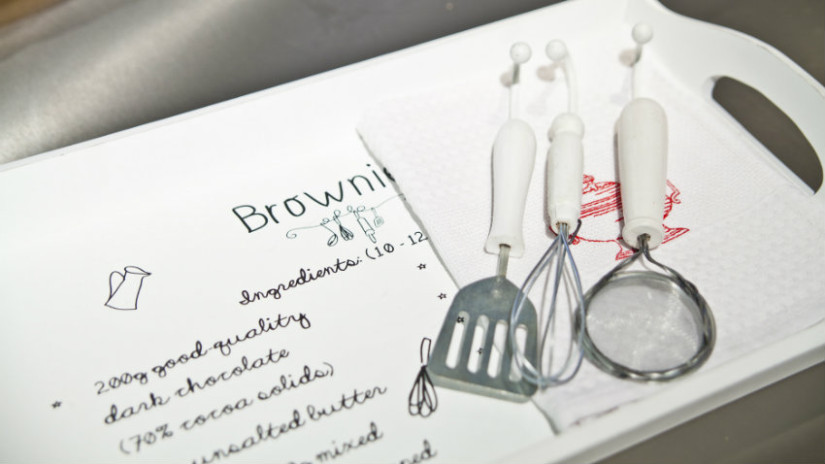 Browni
Ingredients: (10-12
200g good-quality
dark chocolate
(70% cocoa solids)
unsalted butter
mixed